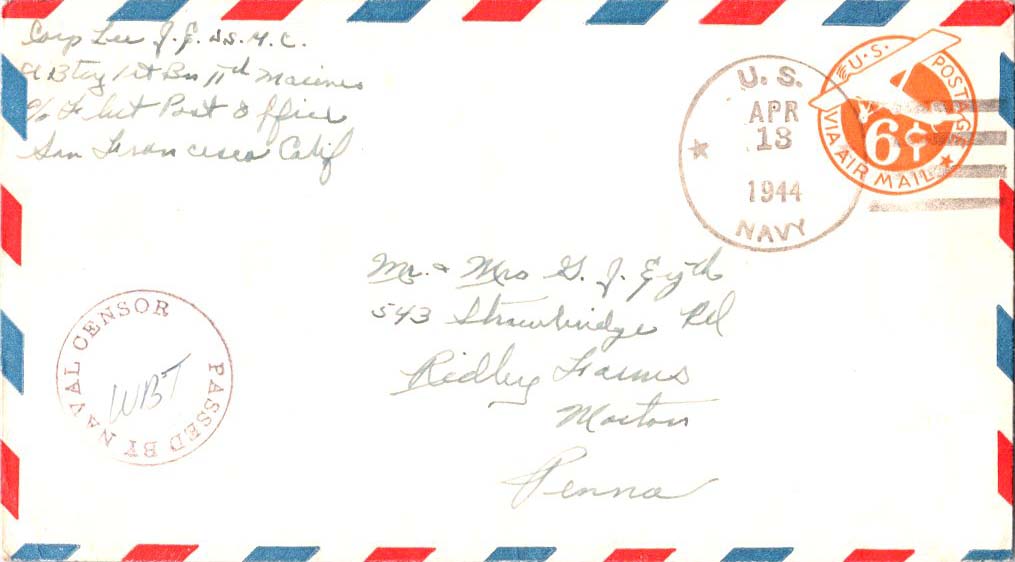 Corp Lee J. E. U.S.M.C.
A Btry 1st Bn 11th Marines
c/o Fleet Post Office
San Francisco Calif
U.S.
APR
13
1944
NAVY
U.S. POSTAGE
VIA AIR MAIL
6¢
Mr. & Mrs G. J. Eyth
543 Strawbridge Rd
Ridley Farms
Morton
Penna
PASSED BY NAVAL CENSOR
WBT